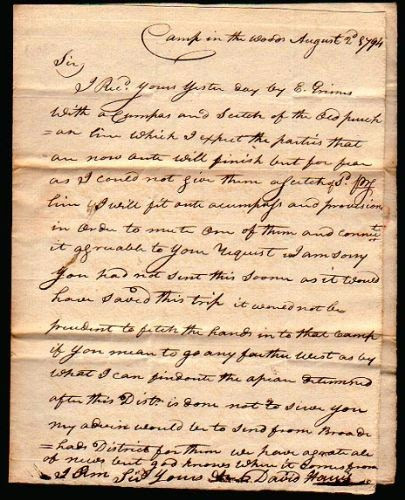 Camp in the Woods August 2d 1794
Sir
I Recd yours yesterday by E. Grimes
with a Cumpas and Scetch of the Old purch
=as line which I expect the parties that
are now oute will finish but for fear
as I could not give them a Scetch of
line I will fit oute a cumpass and provision
in order to mete one of them and
it agreeable to your Request I am sory
you had not sent this sooner as it would
have saved this trip it would not be
prudent to fetch the hands in to that Camp
if you mean to go any farther West as by
what I can find oute the ar determined
after this Distt. is done not to
my advice would be to send from Broade
=heads District for them we have a grate ale
of news but god knows where it comes from
I Am Sir Yours David